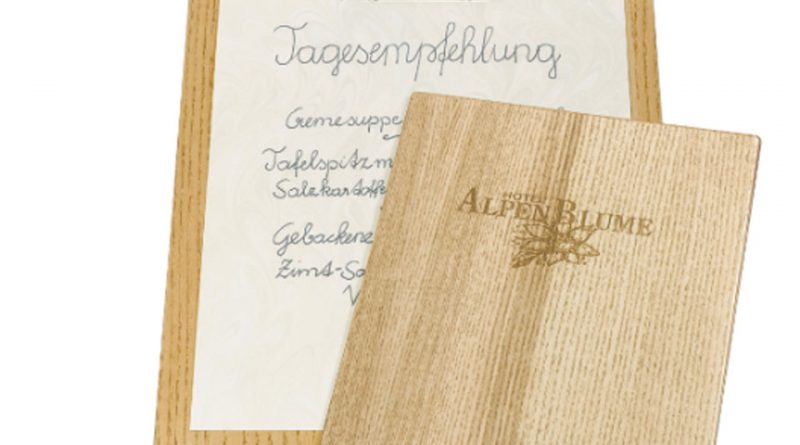 Tagesempfehlung
Cremesuppe
Tafelspitz m
Salzkartoffe
Gebackene
Zimt-So
V
HOTEL
ALPENBLUME